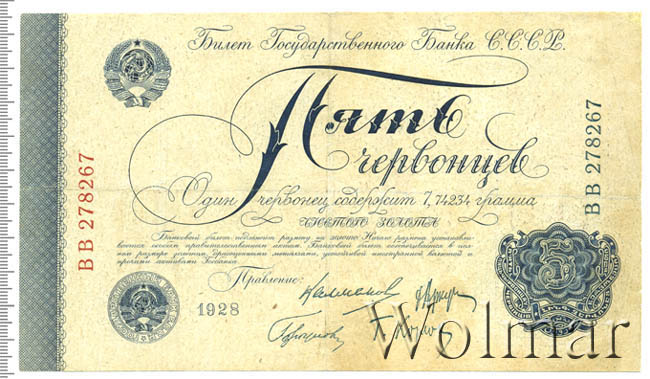 Билет Государственного Банка С.С.С.Р.
Пять
червонцев
Один червонец содержит 7,74234 грамма
чистого золота
Банковый билет подлежит размену на золото. Начало размена устанавли-
вается особым правительственным актом. Банковый билет обеспечивается в пол-
ном размере золотом, драгоценными металлами, устойчивой иностранной валютой и
прочими активами Госбанка.
Правление:
1928
ВВ 278267
ВВ 278267
5
Wolmar